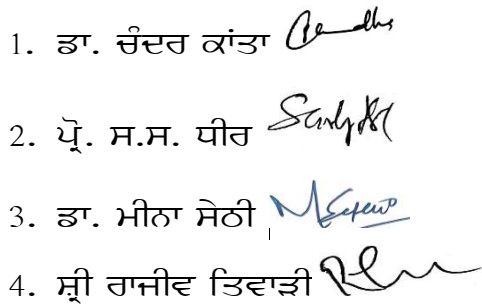 1. ਡਾ. ਚੰਦਰ ਕਾਂਤਾ
2. ਪ੍ਰੋ. ਸ.ਸ. ਧੀਰ
3. ਡਾ. ਮੀਨਾ ਸੇਠੀ
4. ਸ਼੍ਰੀ ਰਾਜੀਵ ਤਿਵਾੜੀ